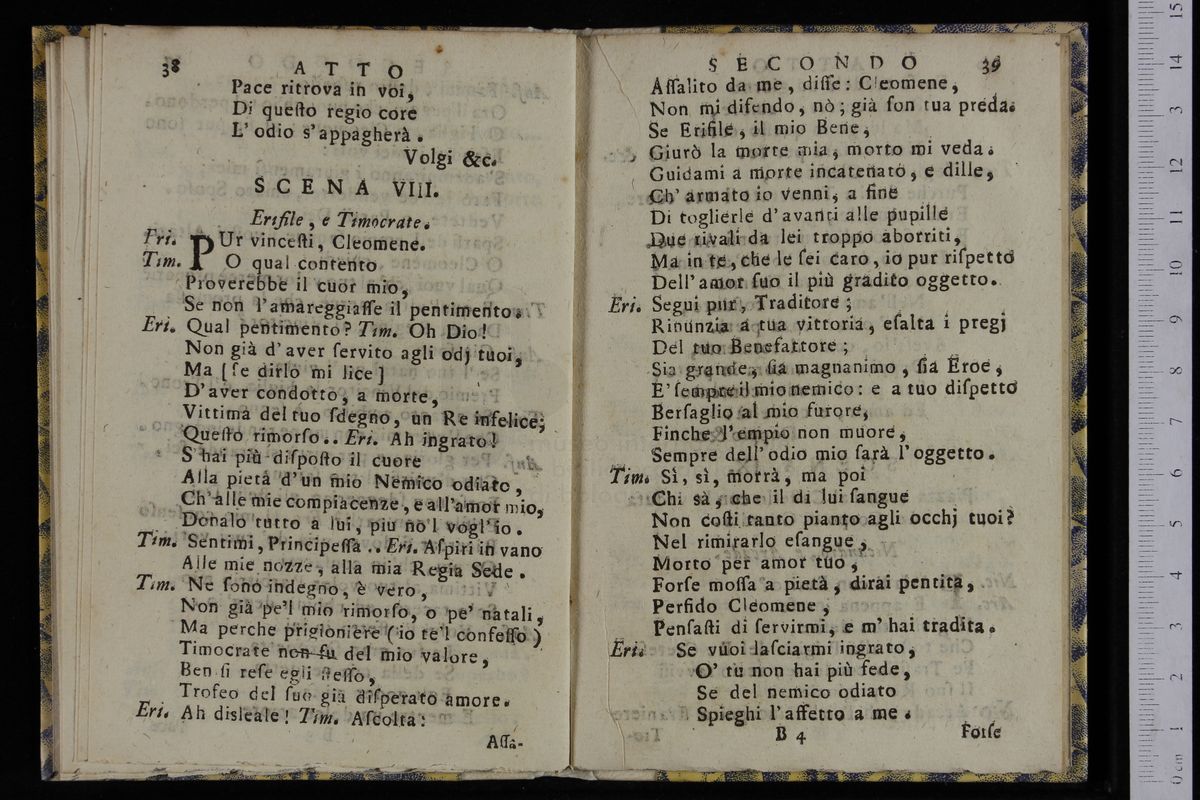 38
ATTO
Pace ritrova in voi,
Di queſto regio core
L' odio s' appagherà.
Volgi &c.
SCENA VIII.
Erifile, e Timocrate.
Eri. PUr vinceſti, Cleomene.
Tim. O qual contento
Proverebbe il cuor mio,
Se non l'amareggiaſſe il pentimento.
Eri. Qual pentimento? Tim. Oh Dio!
Non già d' aver ſervito agli odj tuoi,
Ma [ ſe dirlo mi lice ]
D' aver condotto, a morte,
Vittima del tuo ſdegno, un Re infelice;
Queſto rimorſo.. Eri. Ah ingrato!
S' hai più diſpoſto il cuore
Alla pietà d' un mio Nemico odiato,
Ch' alle mie compiacenze, e all'amor mio,
Donalo tutto a lui, più nò'l vogl'io.
Tim. Sentimi, Principeſſa.. Eri. Aſpiri in vano
Alle mie nozze, alla mia Regia Sede.
Tim. Ne ſono indegno, è vero,
Non già pe'l mio rimorſo, o pe' natali,
Ma perche prigioniere (io te'l confeſſo)
Timocrate non fu del mio valore,
Ben ſi reſe egli ſteſſo,
Trofeo del ſuo già diſperato amore.
Eri. Ah disleale! Tim. Aſcolta:
Aſſa-
SECONDO
39
Aſſalito da me, diſſe: Cleomene,
Non mi difendo, nò; già ſon tua preda.
Se Erifile, il mio Bene,
Giurò la morte mia, morto mi veda.
Guidami a morte incatenato, e dille,
Ch' armato io venni, a fine
Di toglierle d' avanti alle pupille
Due rivali da lei troppo aborriti,
Ma in te, che le ſei caro, io pur riſpetto
Dell' amor ſuo il più gradito oggetto.
Eri. Segui pur, Traditore;
Rinunzia a tua vittoria, eſalta i pregj
Del tuo Benefattore;
Sia grande, ſia magnanimo, ſia Eroe,
E' ſempre il mio nemico: e a tuo diſpetto
Berſaglio al mio furore,
Finche l' empio non muore,
Sempre dell' odio mio ſarà l' oggetto.
Tim. Sì, sì, morrà, ma poi
Chi sà, che il di lui ſangue
Non coſti tanto pianto agli occhj tuoi?
Nel rimirarlo eſangue,
Morto per amor tuo,
Forſe moſſa a pietà, dirai pentita,
Perfido Cleomene,
Penſaſti di ſervirmi, e m' hai tradita.
Eri. Se vuoi laſciarmi ingrato,
O' tu non hai più fede,
Se del nemico odiato
Spieghi l' affetto a me.
B 4
Forſe